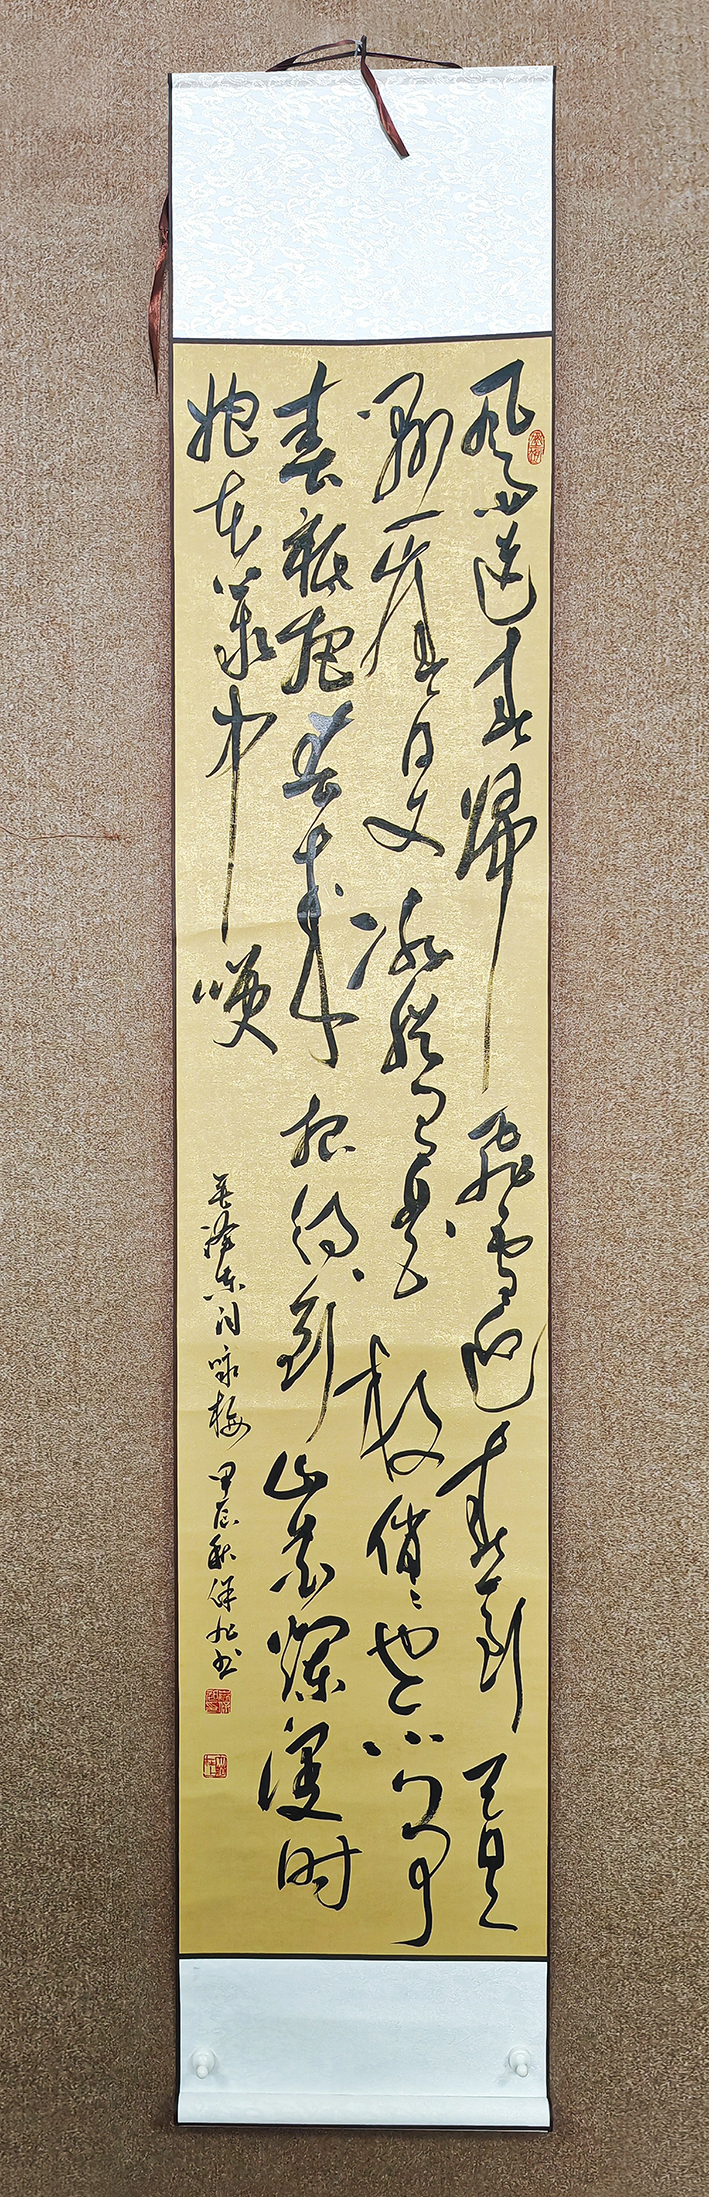 风雨送春归飞雪迎春到已是
悬崖百丈冰犹有花枝俏〻也不争
春衹把春来报待到山花烂漫时
她在丛中咲
毛泽东词咏梅 甲辰秋保书